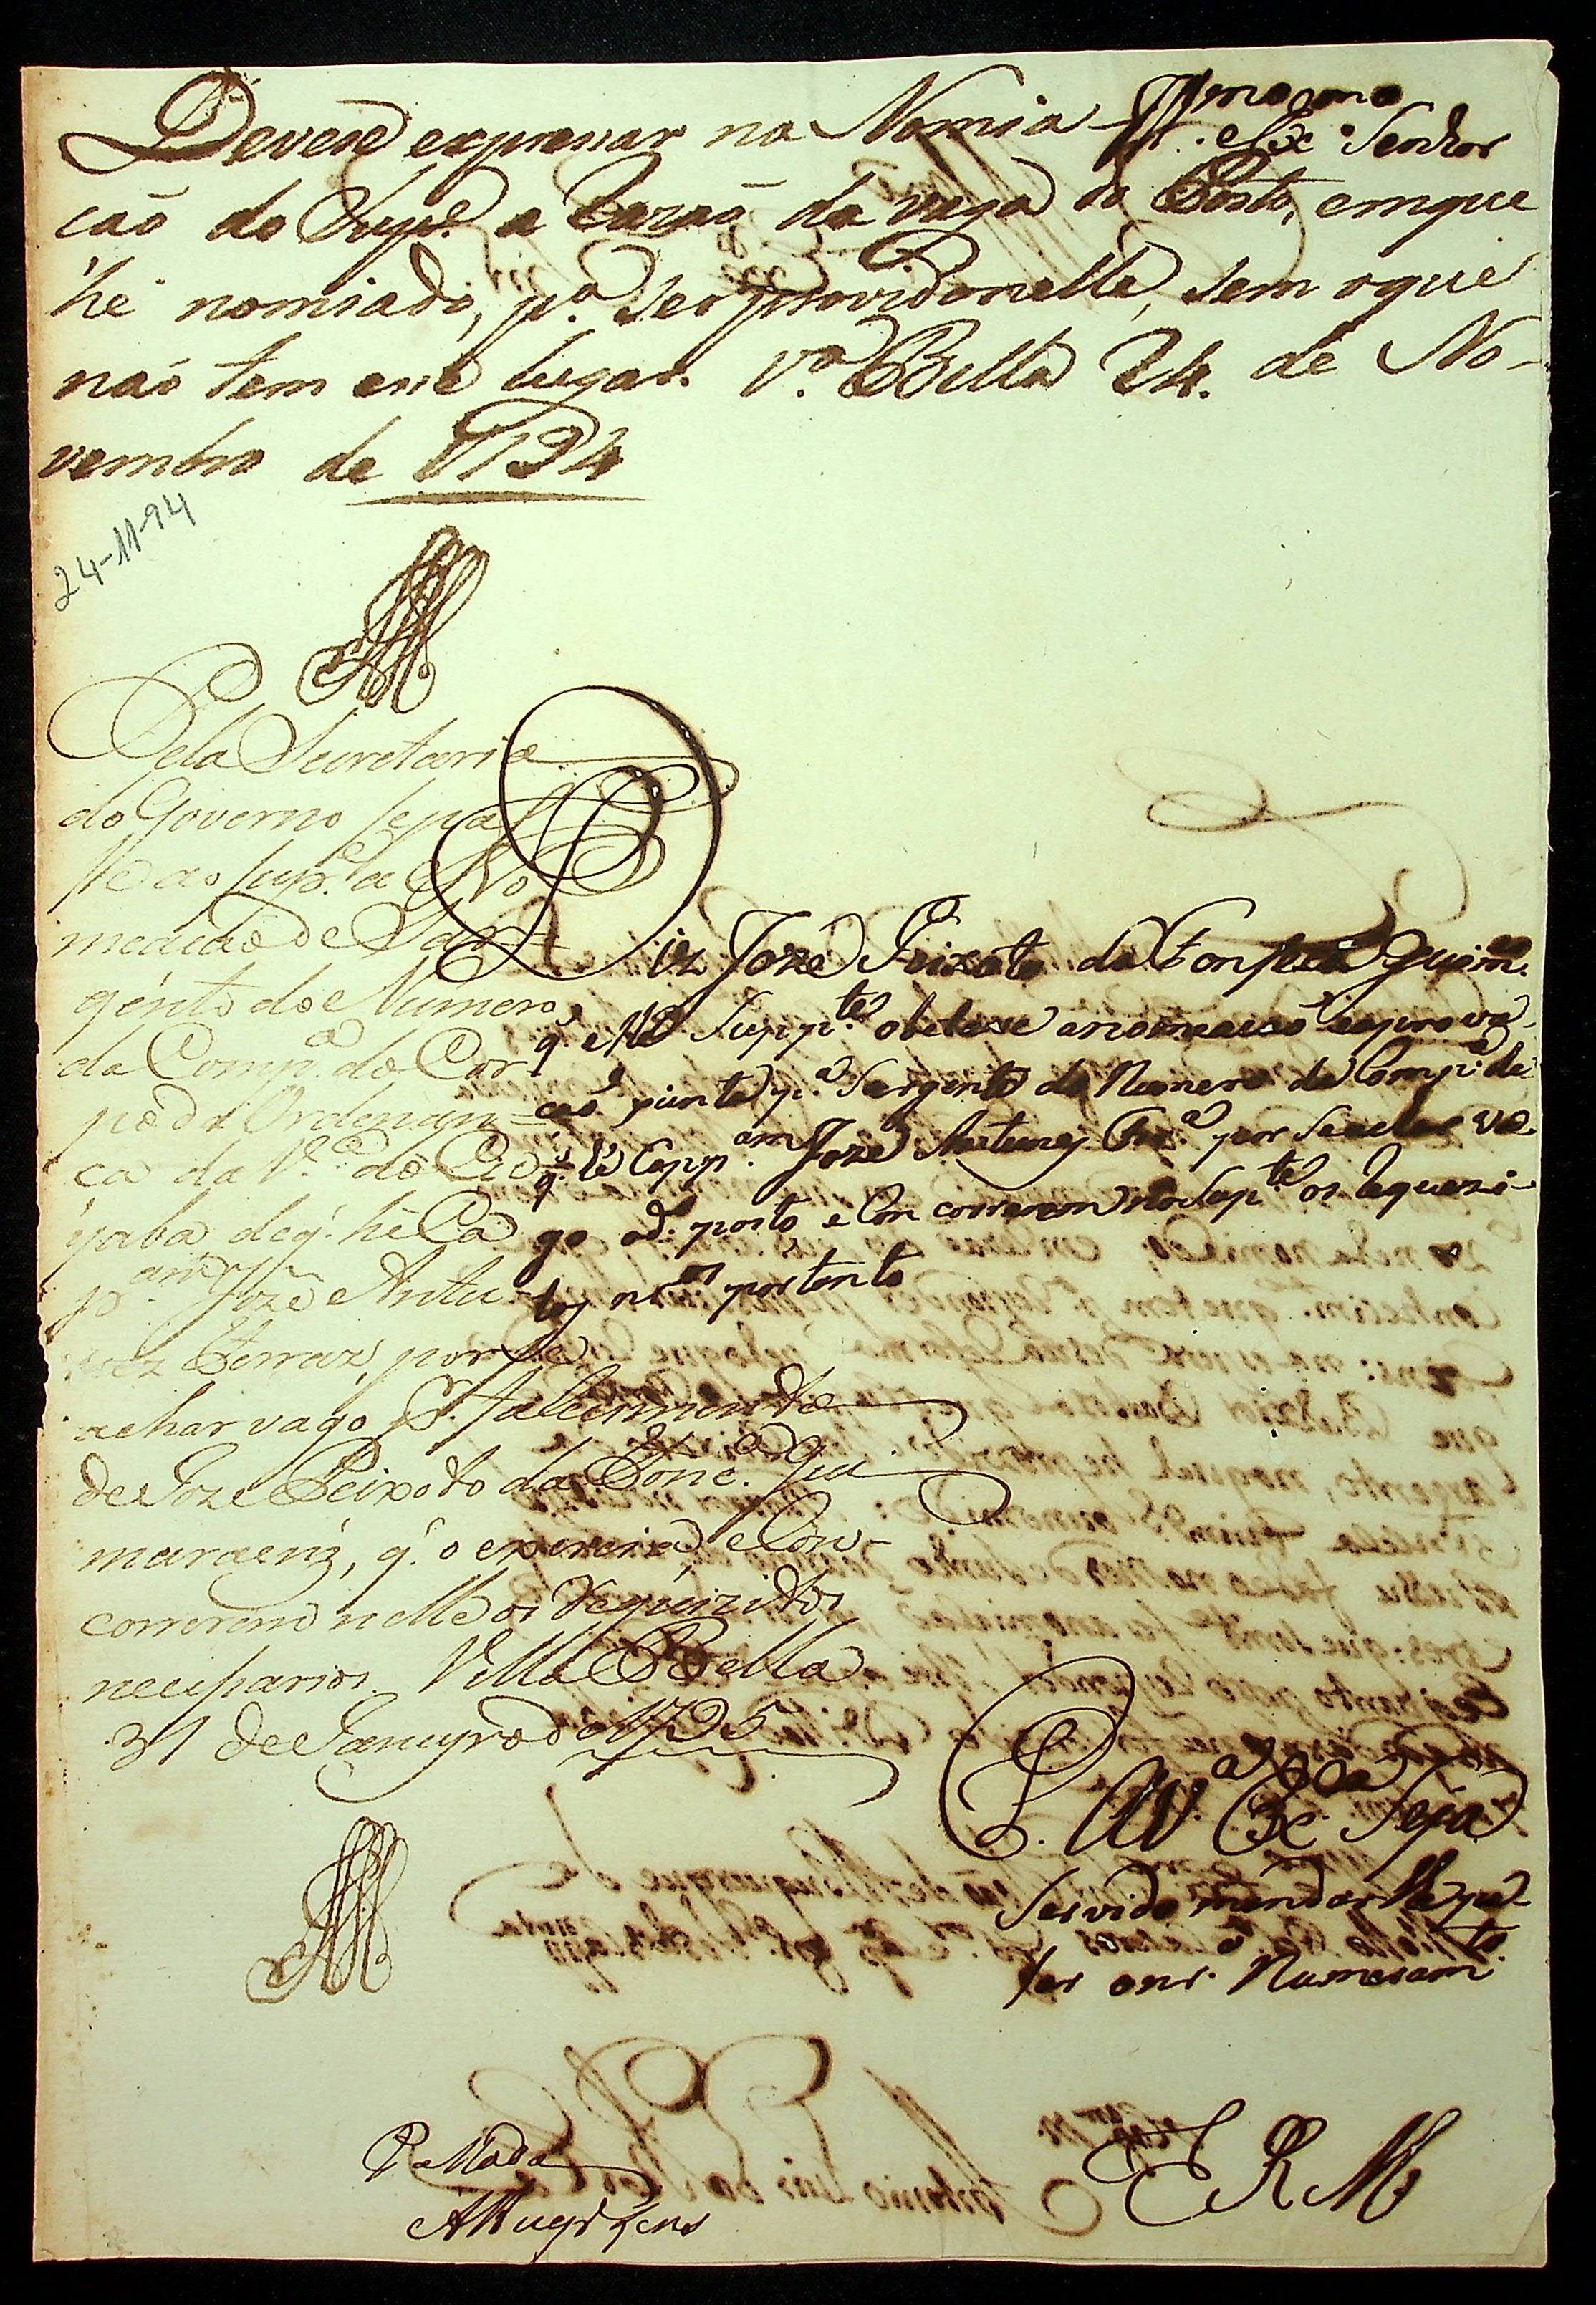 Illmo. e Exmo. Senhor
Devese expressar na Nomia
cão do Supe. a Razão da vaga do Posto, emque
hé nomiado, pa. ser providonelle, sem oque
não tem este lugar. Va. Bella 24. de No-
vembro de 1794
24-11-94
Pela Secretaria
do Governo sepas
se ao Supte. a No
meação de Sar=
gento do Numero
da Compa. do Cor=
po da Ordenan=
ca da Va. do Cu
yaba deq. hé Ca
pam. Joze Antu
nez Ferraz, por se
achar vago pr. falecimento
de Joze Peixoto da Fonca. Gui
maraens, q. o exercia, e Con-
correrem nelle os Requizitos
necessarios. Villa Bella
31 de Janeyro de 1795
Diz Joze Peixoto da Fonseca Guimes.
q. elle Suppte. obteve anomeacão eaprova
cão junta pa. Sargento do Numero da Compa. de
q. hé Cappam. Joze Antunes por Seachar va
go od. posto e Con correrem no Supte. os Requezi-
tos nesos. portanto
P. a V. Exa. Seja
Servido mandar lhe pa
sar Numeram.to
E R M